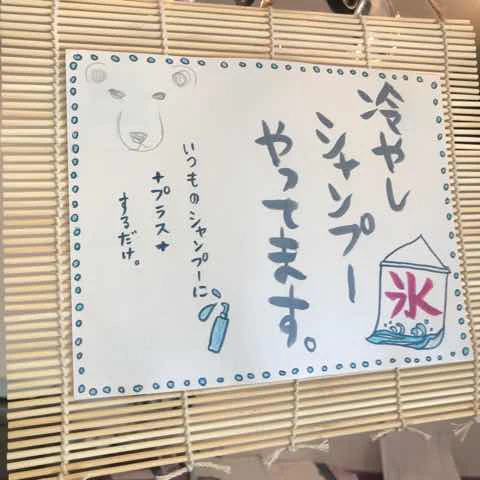 冷やし
シャンプー
やってます。
氷
いつものシャンプーに
+プラス+
するだけ。